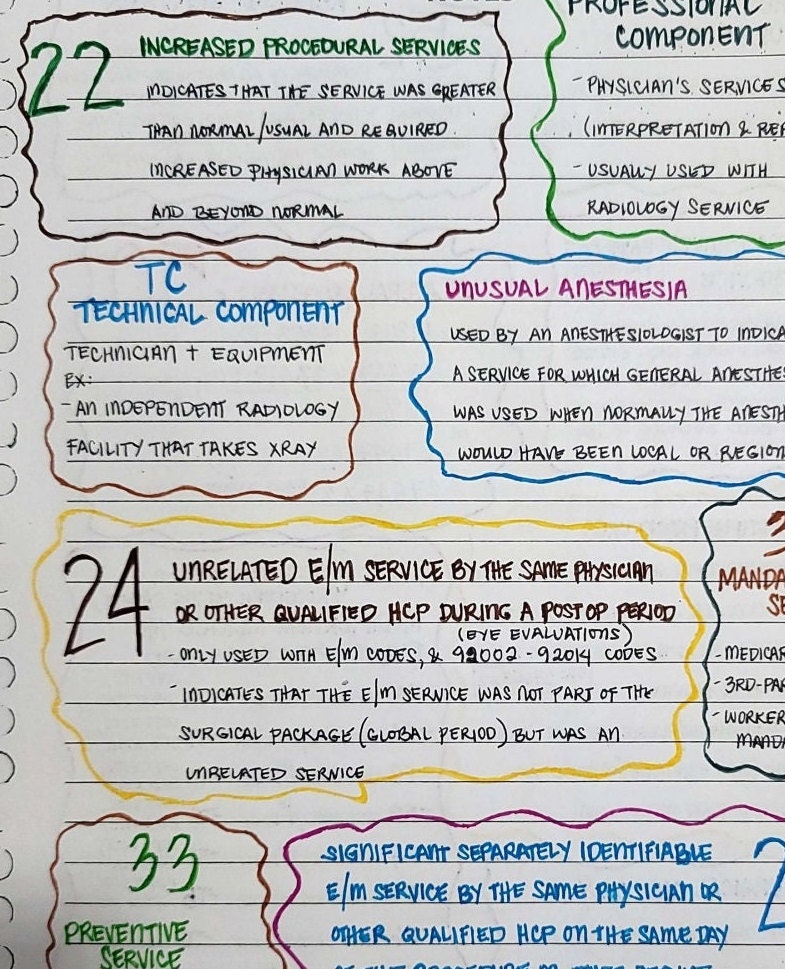 22
INCREASED PROCEDURAL SERVICES
INDICATES THAT THE SERVICE WAS GREATER
THAN NORMAL/USUAL AND REQUIRED
INCREASED PHYSICIAN WORK ABOVE
AND BEYOND NORMAL
PROFESSIONAL
COMPONENT
- PHYSICIAN'S SERVICES
(INTERPRETATION &
- USUALLY USED WITH
RADIOLOGY SERVICE
TC
TECHNICAL COMPONENT
TECHNICIAN + EQUIPMENT
EX:
- AN INDEPENDENT RADIOLOGY
FACILITY THAT TAKES XRAY
UNUSUAL ANESTHESIA
USED BY AN ANESTHESIOLOGIST TO
A SERVICE FOR WHICH GENERAL
WAS USED WHEN NORMALLY THE
WOULD HAVE BEEN LOCAL OR
24
UNRELATED E/M SERVICE BY THE SAME PHYSICIAN
OR OTHER QUALIFIED HCP DURING A POSTOP PERIOD
(EYE EVALUATIONS)
- ONLY USED WITH E/M CODES, & 92002 - 92014 CODES
- INDICATES THAT THE E/M SERVICE WAS NOT PART OF THE
SURGICAL PACKAGE (GLOBAL PERIOD) BUT WAS AN
UNRELATED SERVICE
33
PREVENTIVE
SERVICE
SIGNIFICANT SEPARATELY IDENTIFIABLE
E/M SERVICE BY THE SAME PHYSICIAN OR
OTHER QUALIFIED HCP ON THE SAME DAY